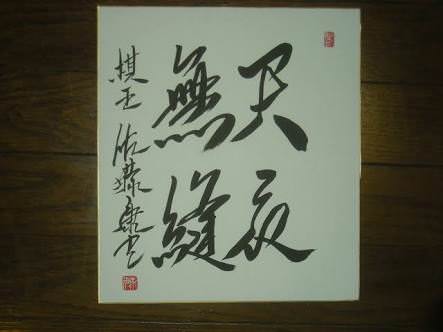 天衣
無縫
棋王 佐藤康光